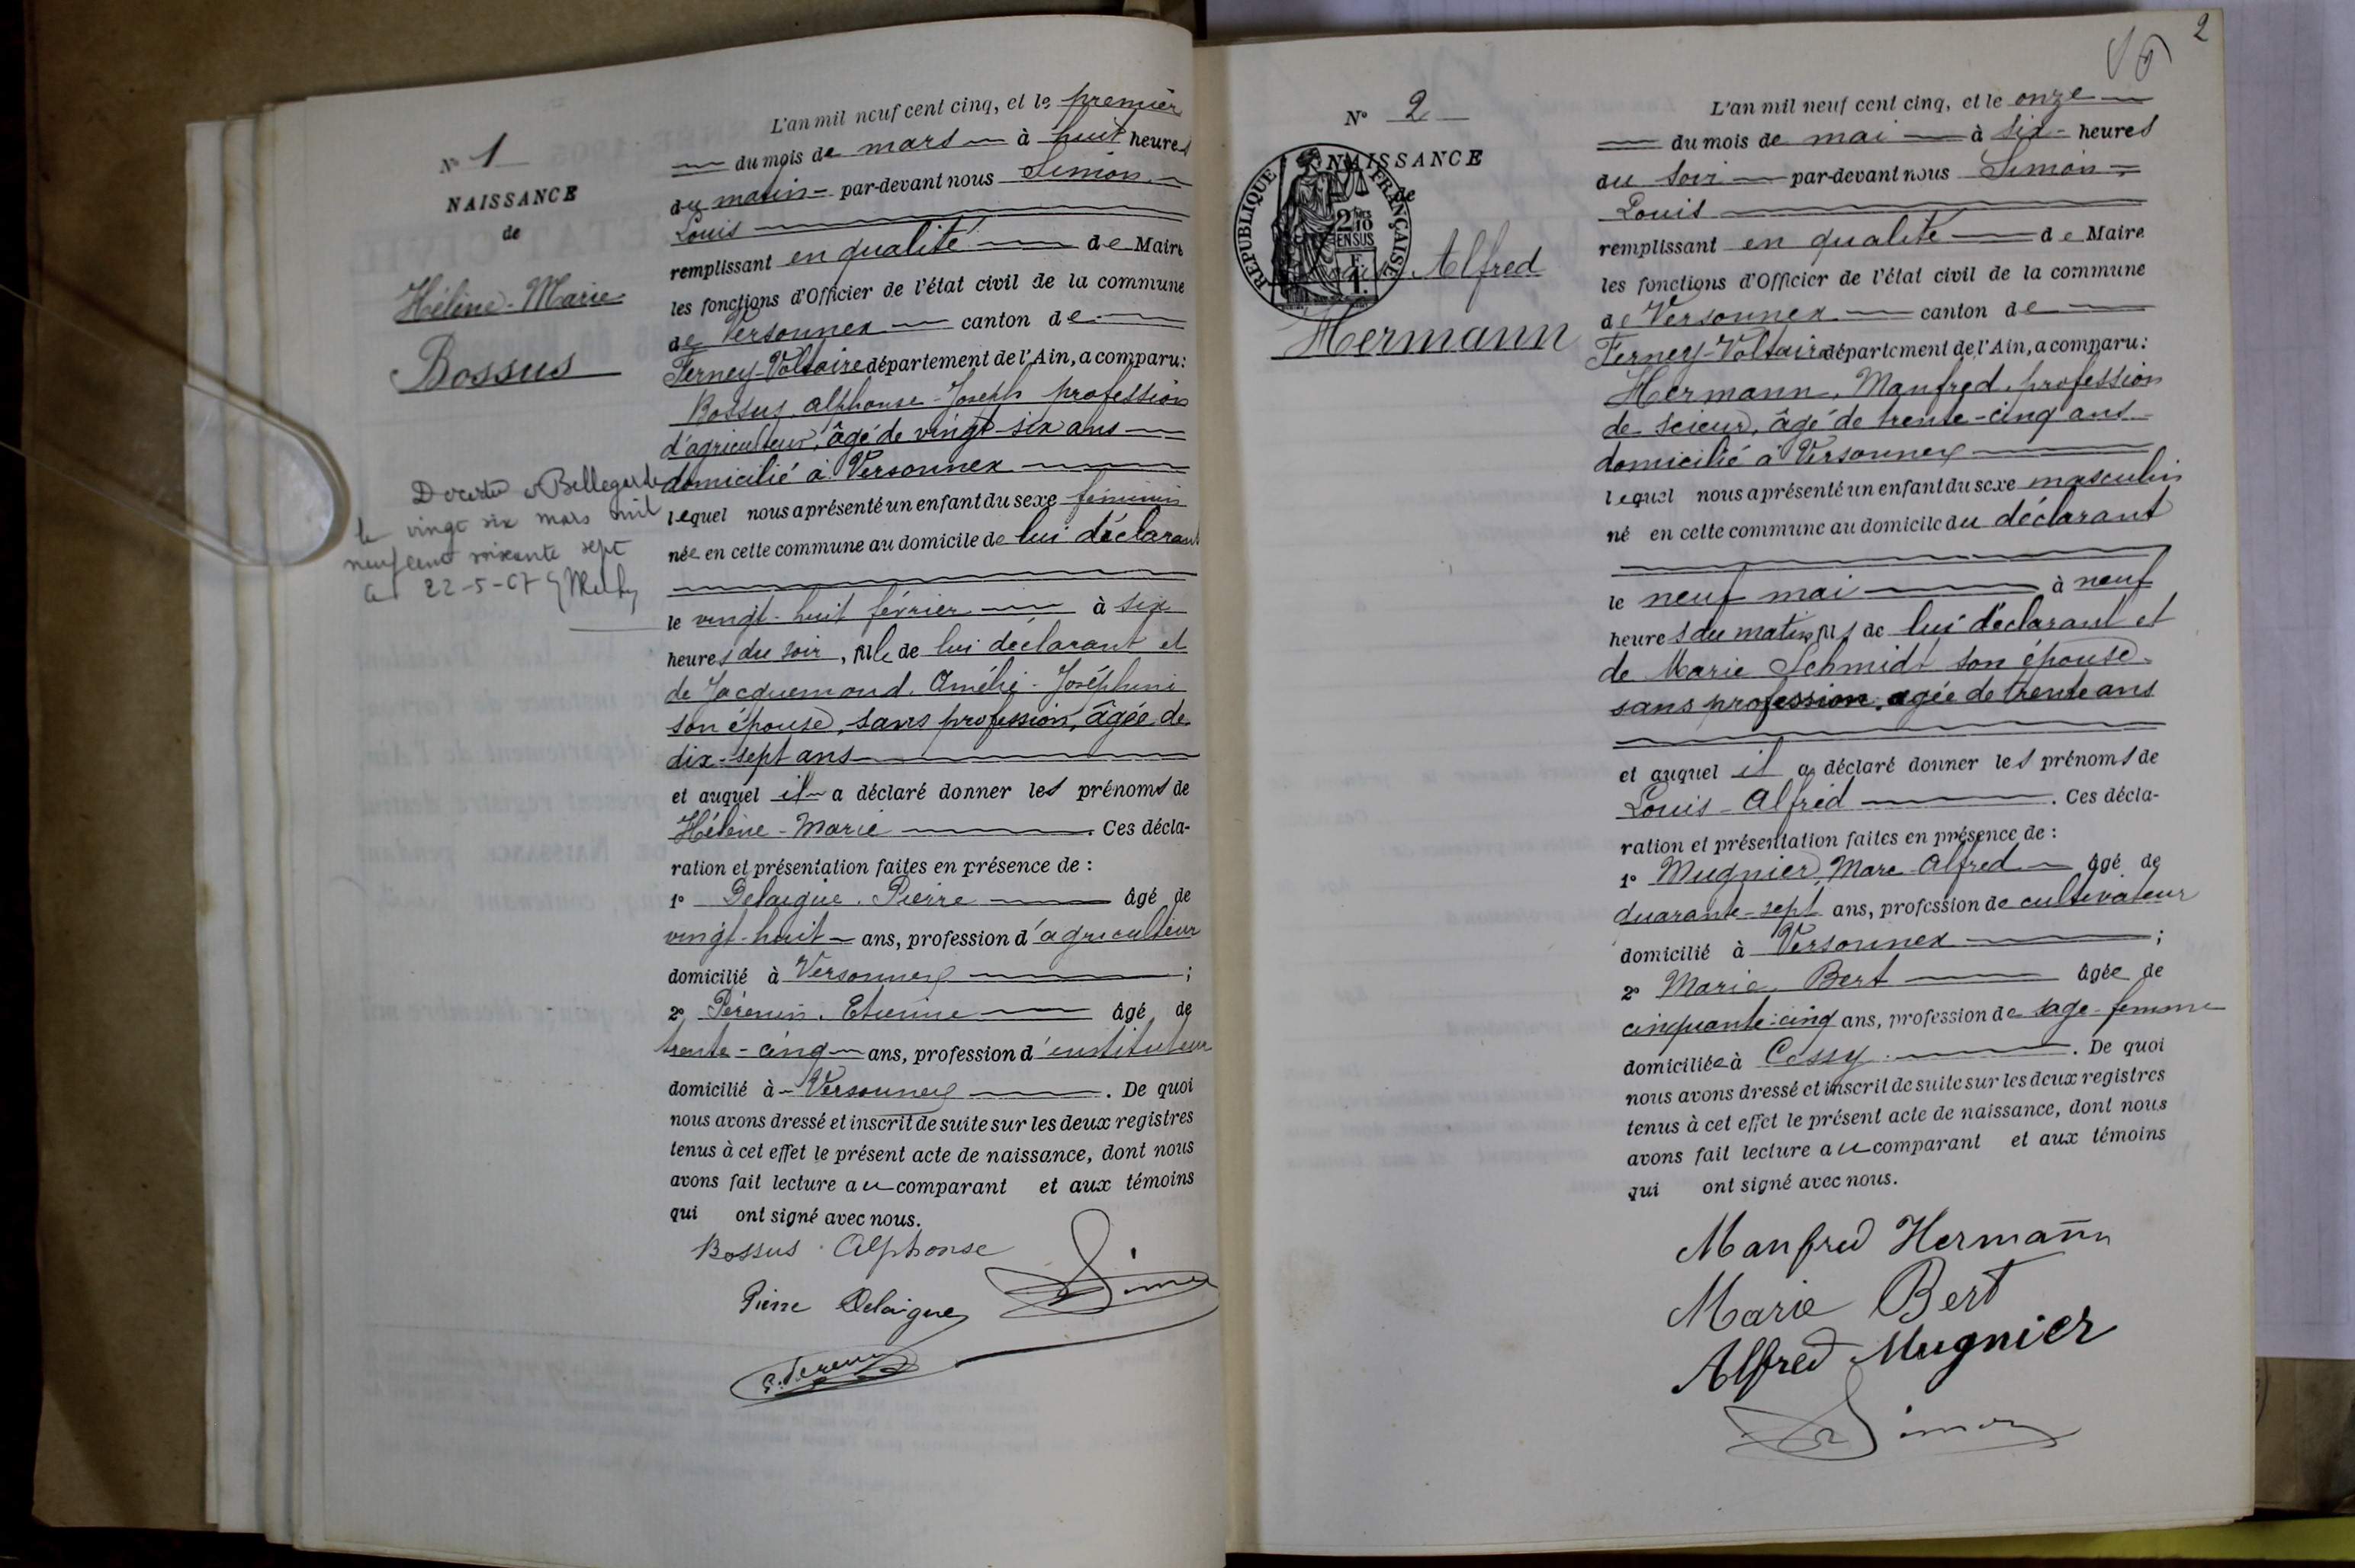 N° 1
NAISSANCE
de
Hélène-Marie
Bossus
Décédée à Bellegarde
le vingt six mars mil
neuf cent soixante sept
22-5-67
L'an mil neuf cent cinq, et le premier
du mois de mars à huit heures
du matin par-devant nous Simon
Louis
remplissant en qualité de Maire
les fonctions d'Officier de l'état civil de la commune
de Versonnex canton de
Ferney-Voltaire département de l'Ain, a comparu:
Bossus, alphonse-Joseph profession
d'agriculteur, âgé de vingt-six ans
domicilié à Versonnex
lequel nous a présenté un enfant du sexe féminin
née en cette commune au domicile de lui déclarant
le vingt-huit février à six
heures du soir, fille de lui déclarant et
de Jacquemoud. Amélie-Joséphine
son épouse, sans profession, âgée de
dix-sept ans
et auquel il a déclaré donner les prénoms de
Hélène-Marie. Ces décla-
ration et présentation faites en présence de :
1° Delaigue. Pierre âgé de
vingt-huit ans, profession d'agriculteur
domicilié à Versonnex ;
2° Pérenin. Etienne âgé de
trente-cinq ans, profession d'instituteur
domicilié à Versonnex. De quoi
nous avons dressé et inscrit de suite sur les deux registres
tenus à cet effet le présent acte de naissance, dont nous
avons fait lecture au comparant et aux témoins
qui ont signé avec nous.
Bossus Alphonse
Simon
Pierre Delaigue
2
N° 2
NAISSANCE
de
REPUBLIQUE FRANÇAISE
2/10
EN SUS
Alfred
Hermann
L'an mil neuf cent cinq, et le onze
du mois de mai à six heures
du soir par-devant nous Simon
Louis
remplissant en qualité de Maire
les fonctions d'Officier de l'état civil de la commune
de Versonnex canton de
Ferney-Voltaire département de l'Ain, a comparu:
Hermann, Manfred, profession
de scieur, âgé de trente-cinq ans
domicilié à Versonnex
lequel nous a présenté un enfant du sexe masculin
né en cette commune au domicile du déclarant
le neuf mai à neuf
heures du matin, fils de lui déclarant et
de Marie Schmidt son épouse,
sans profession, agée de trente ans
et auquel il a déclaré donner les prénoms de
Louis-Alfred. Ces décla-
ration et présentation faites en présence de :
1° Mugnier, Marc-Alfred âgé de
quarante-sept ans, profession de cultivateur
domicilié à Versonnex ;
2° Marie Bert âgée de
cinquante-cinq ans, profession de sage-femme
domiciliée à Cessy. De quoi
nous avons dressé et inscrit de suite sur les deux registres
tenus à cet effet le présent acte de naissance, dont nous
avons fait lecture au comparant et aux témoins
qui ont signé avec nous.
Manfred Hermann
Marie Bert
Alfred Mugnier
Simon